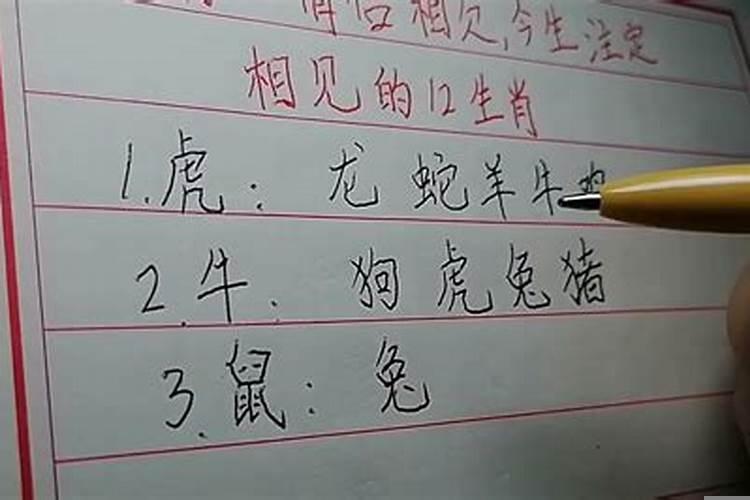 相欠,今生注定
相见的12生肖
1.虎: 龙蛇羊牛
2.牛. 狗虎兔猪
3.鼠: 兔